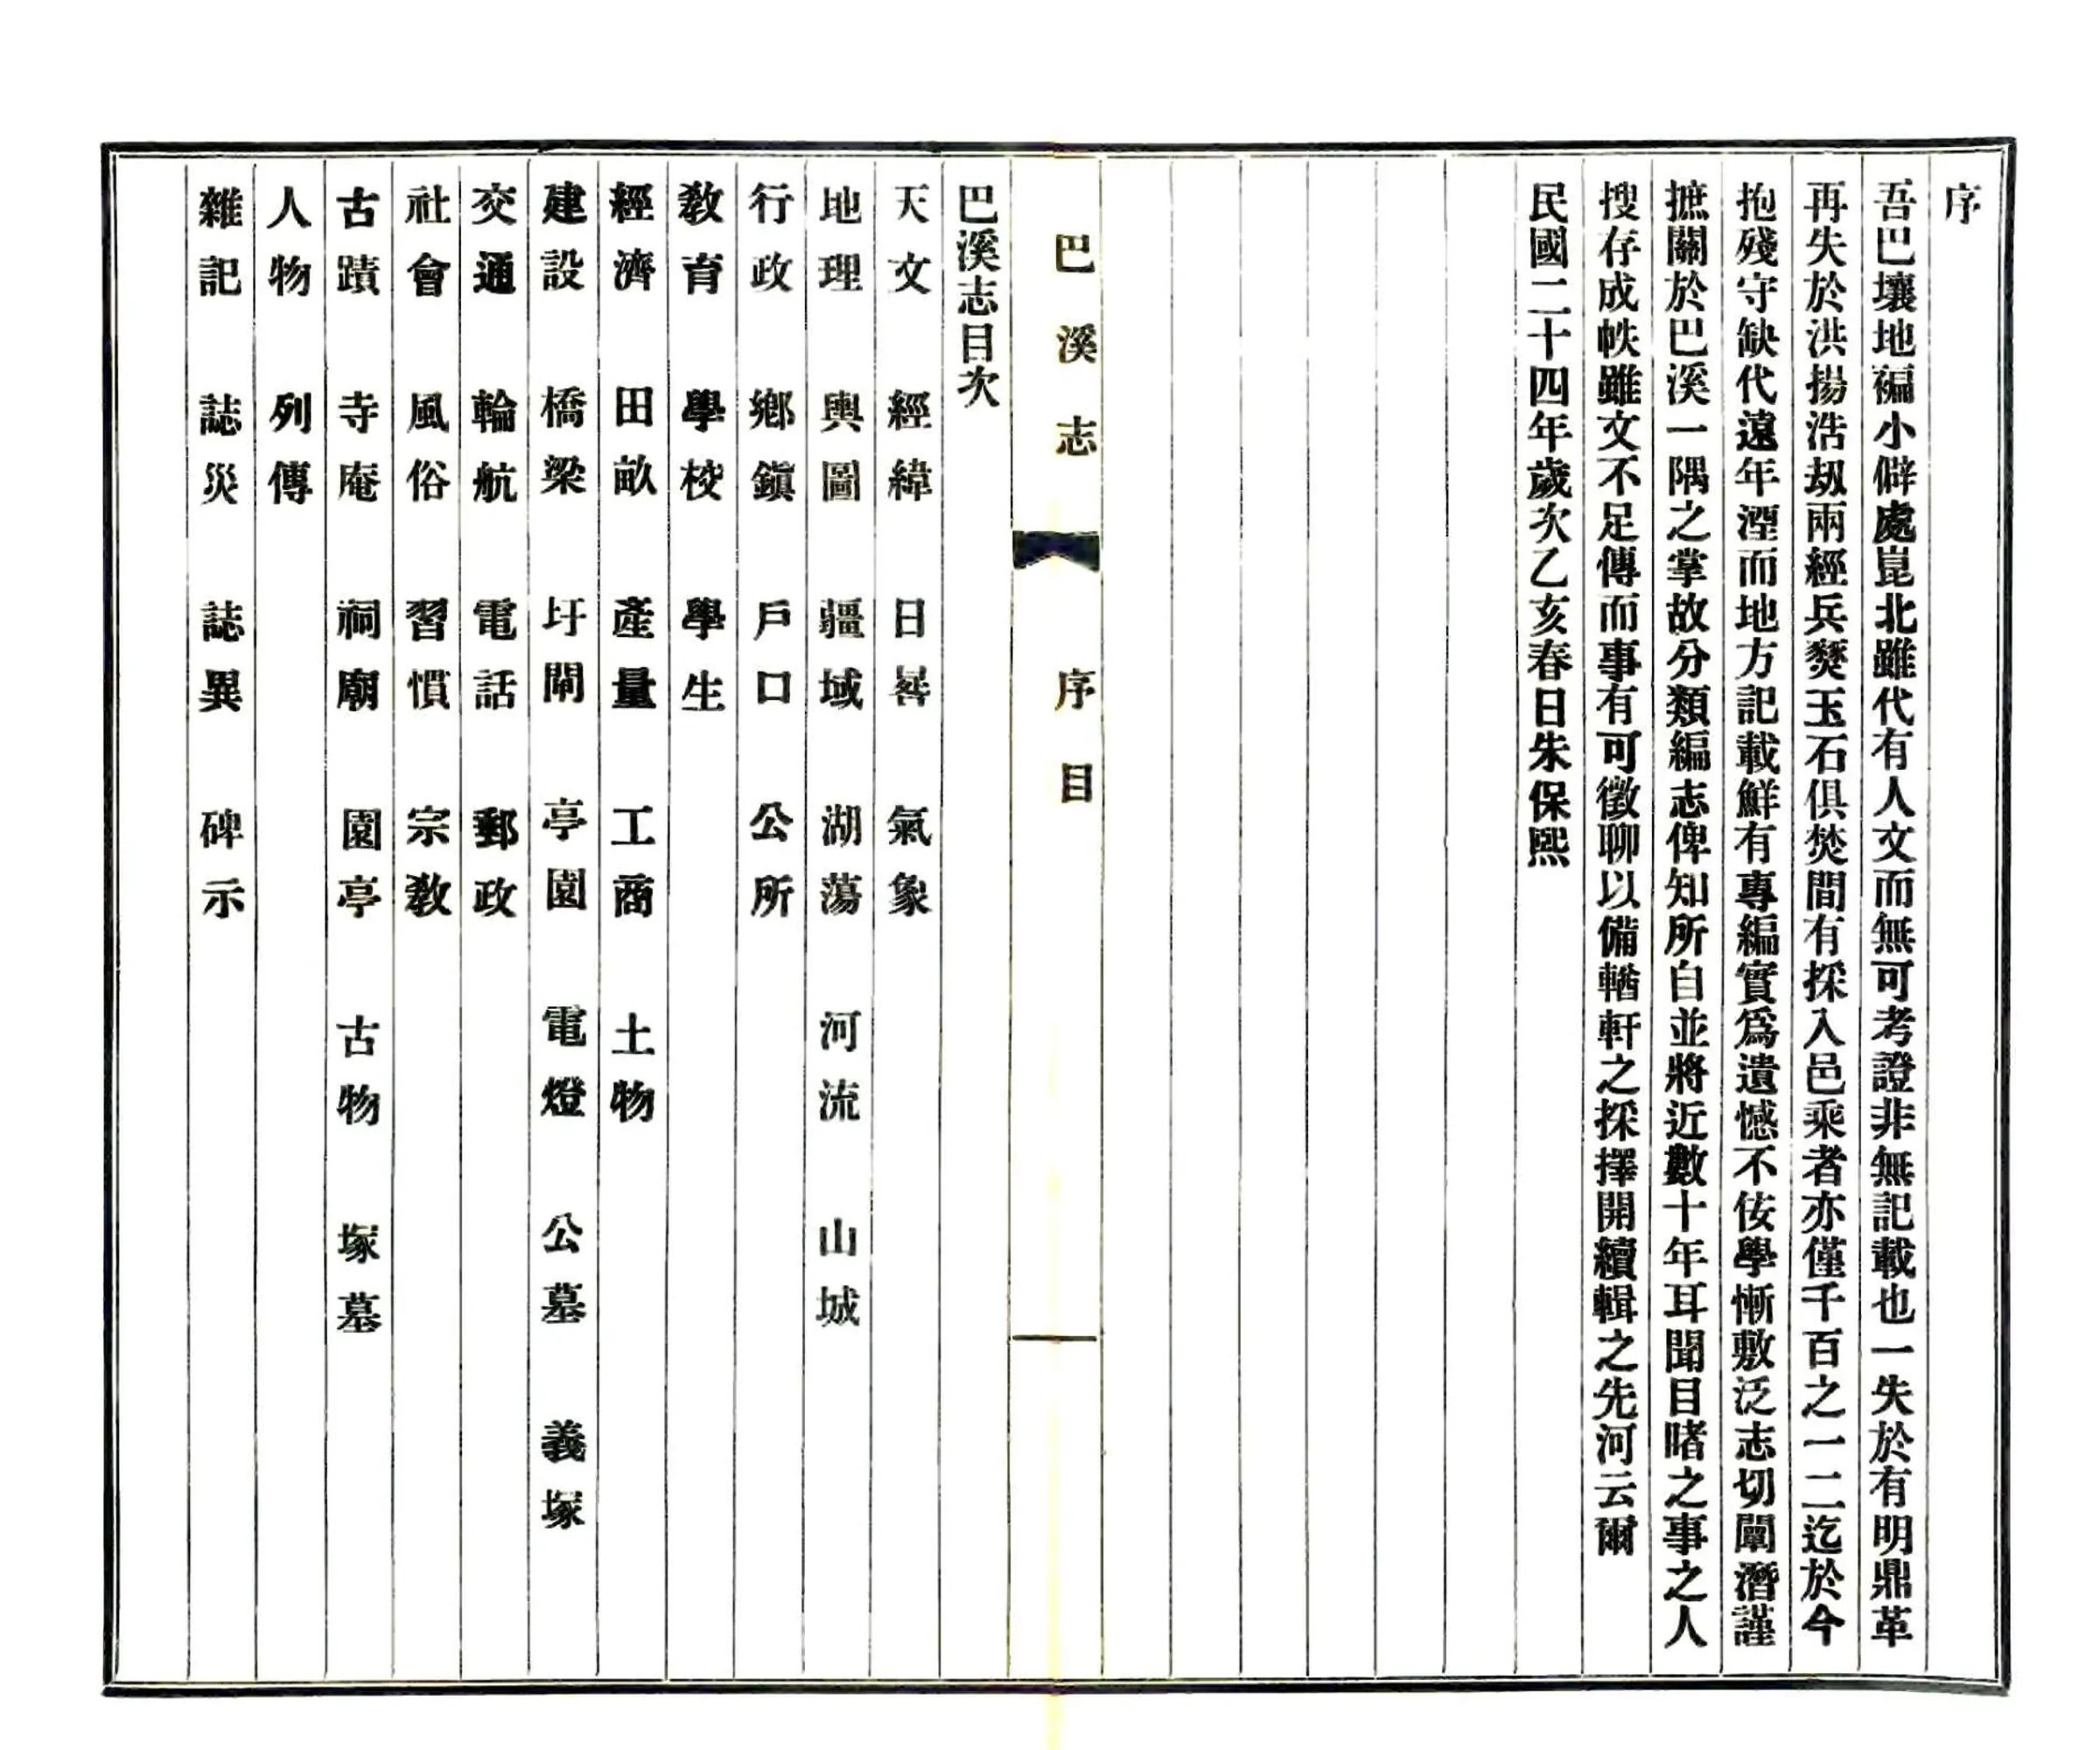 序
吾巴壤地褊小僻處崑北雖代有人文而無可考證非無記載也一失於有明鼎革
再失於洪揚浩刼兩經兵燹玉石俱焚間有採入邑乘者亦僅千百之一二迄於今
抱殘守缺代遠年湮而地方記載鮮有專編實爲遺憾不佞學慚敷泛志切闡潛謹
摭關於巴溪一隅之掌故分類編志俾知所自並將近數十年耳聞目睹之事之人
搜存成帙雖文不足傳而事有可徵聊以備輶軒之採擇開續輯之先河云爾
民國二十四年歲次乙亥春日朱保熙
巴溪志 序目 一
巴溪志目次
天文 經緯 日晷 氣象
地理 輿圖 疆域 湖蕩 河流 山城
行政 鄉鎭 戶口 公所
教育 學校 學生
經濟 田畝 產量 工商 土物
建設 橋梁 圩閘 亭園 電燈 公墓 義塚
交通 輪航 電話 郵政
社會 風俗 習慣 宗教
古蹟 寺庵 祠廟 園亭 古物 塚墓
人物 列傳
雜記 誌災 誌異 碑示